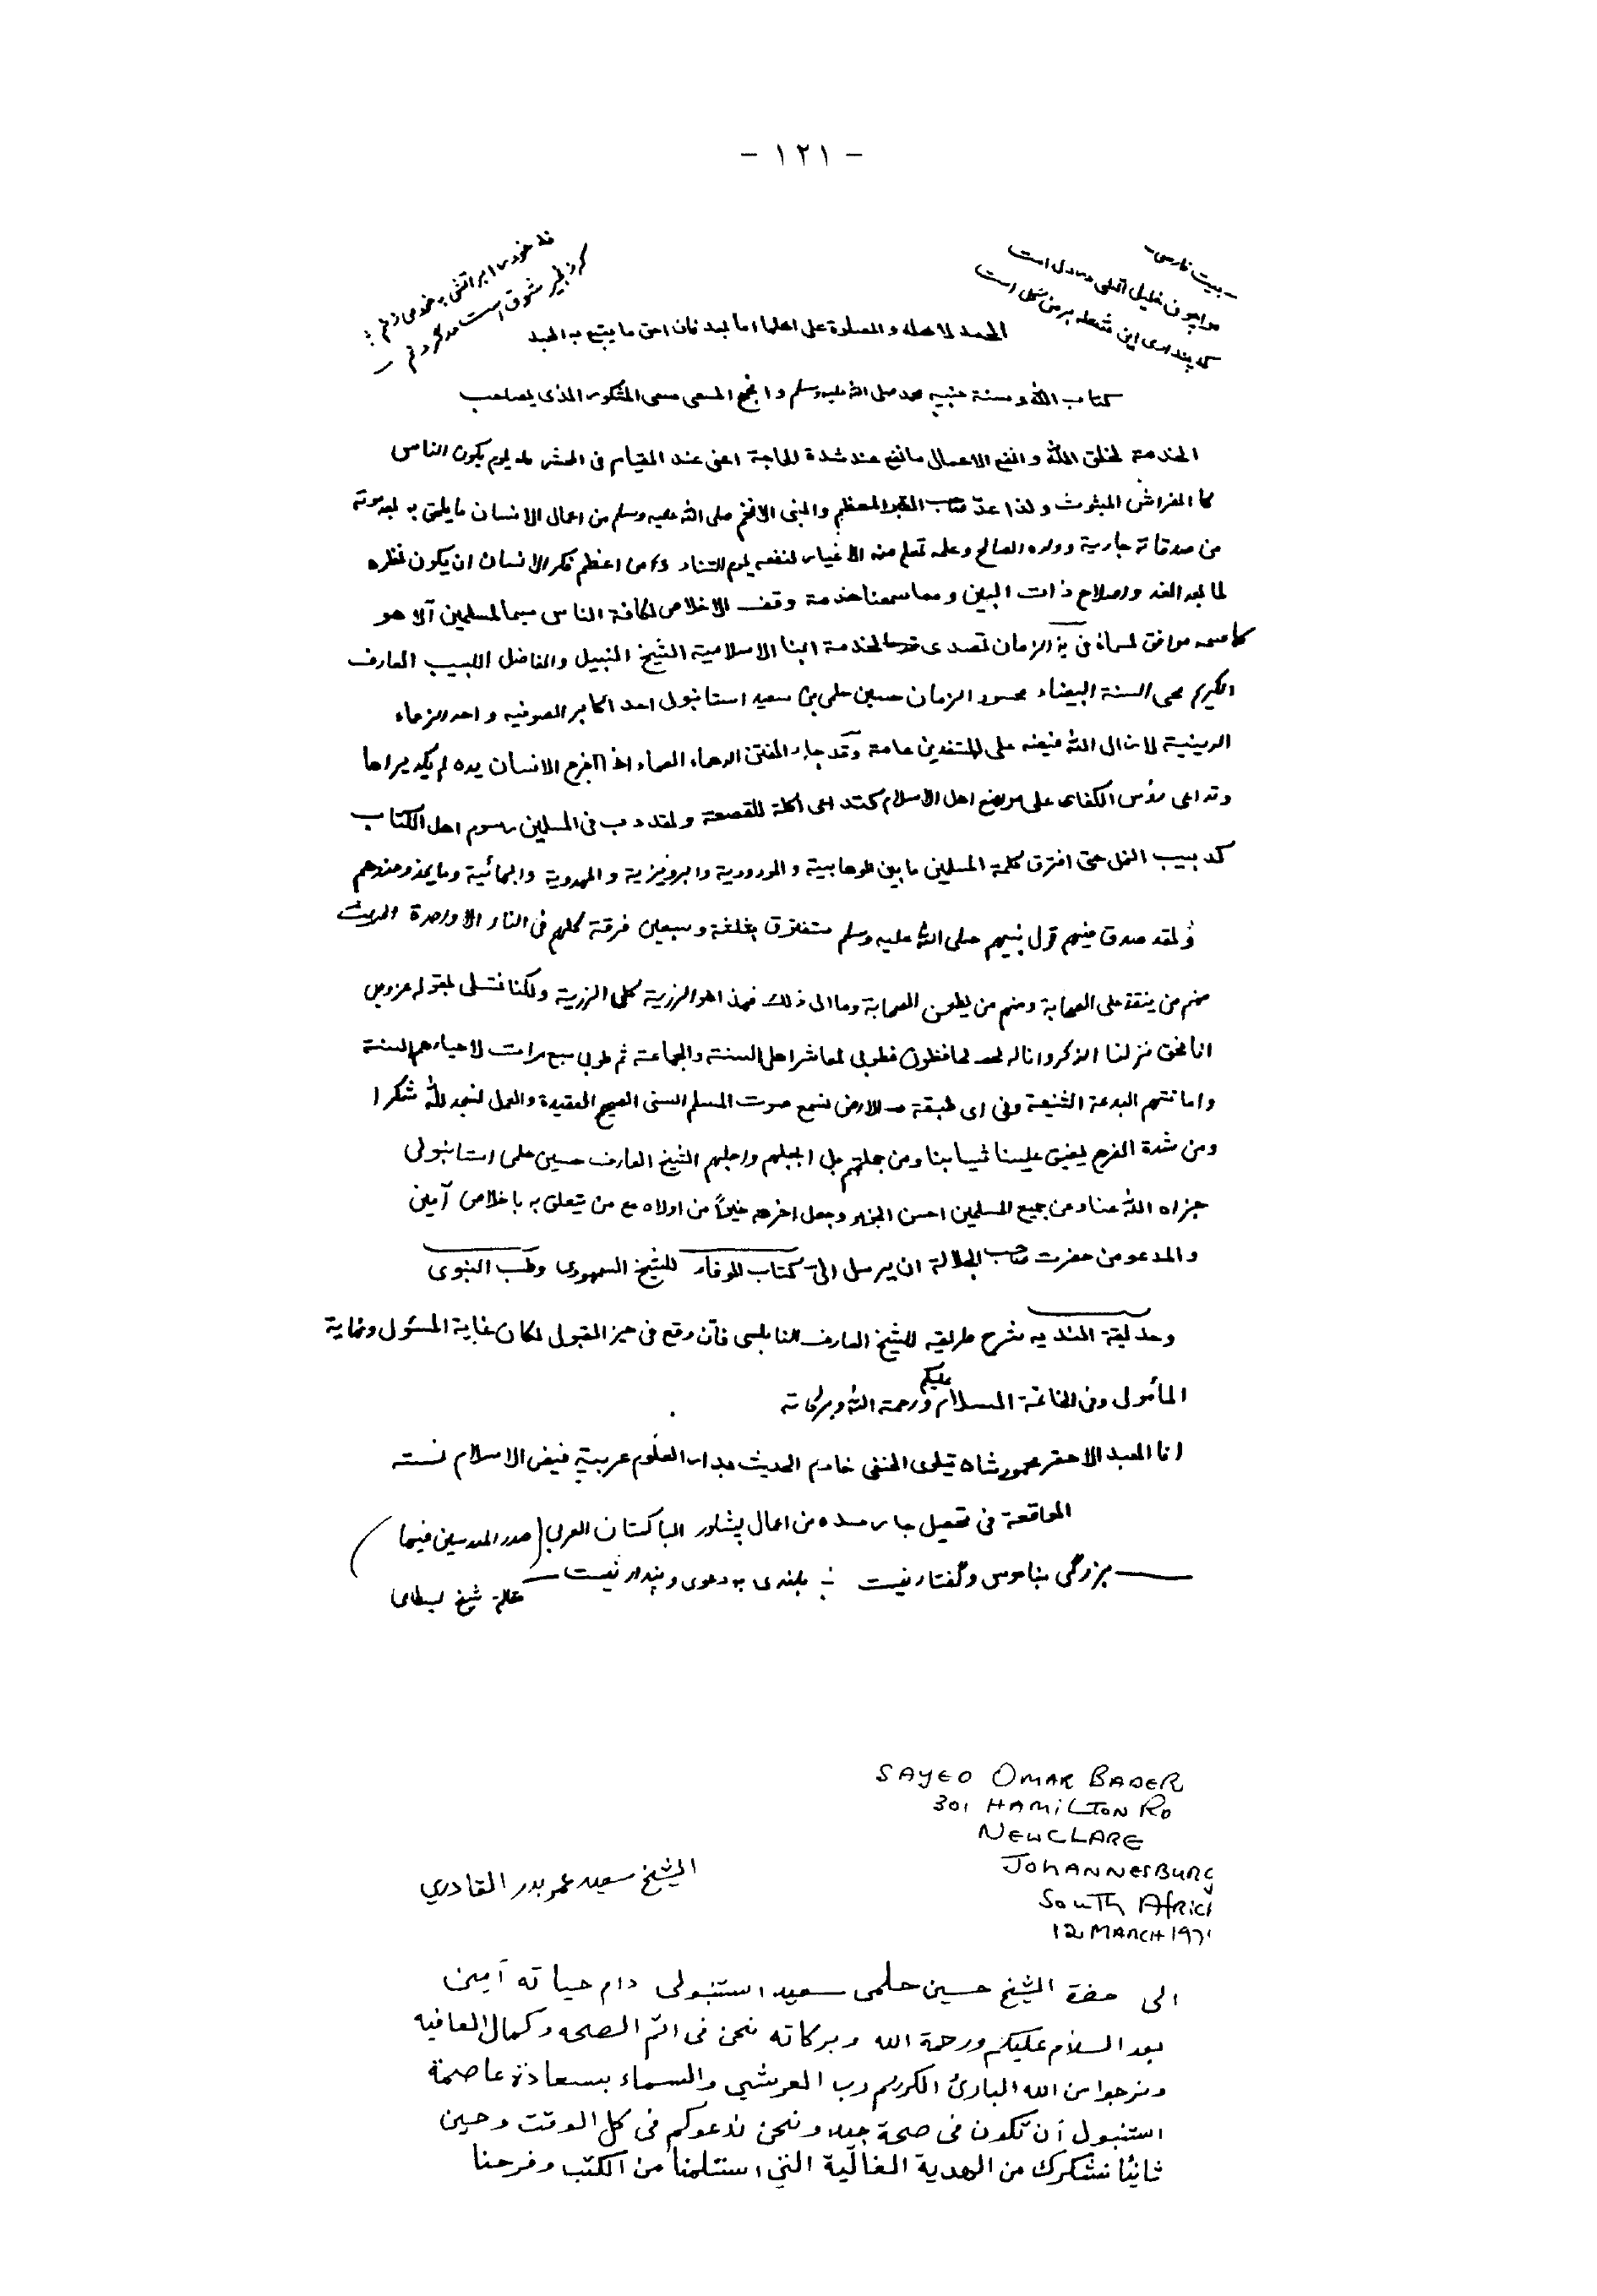 - ١٢١ -
- بيت فارسي -
مرا چون خليل آتشى در دل است
كه پندارى اين شعله بر من گل است
الحمد لاهله والصلوة على اهلها اما بعد فان احق ما يتبع به العبد
كتاب الله وسنة نبيه محمد صلى الله عليه وسلم وانجح المسعى سعى المشكور الذى يصاحب
الخدمة لخلق الله وانفع الاعمال مانفع عند شدة الحاجة اعنى عند القيام فى الحشر يوم يكون الناس
كالفراش المبثوث ولذا عدّ صاحب القبر المعظم والنبى الافخم صلى الله عليه وسلم من اعمال الانسان مايلحق به بعد موته
من صدقاته جارية وولده الصالح وعلمه تعلم منه الاغيار لنفعه يوم التناد ومن اعظم فكر الانسان ان يكون نظره
لما بعد الغد واصلاح ذات البين ومما سمعنا خدمة وقف الاخلاص لكافة الناس سيما لمسلمين آلا هو
كاسمه موافق لمسماه فى الزمان تصدى لخدمة ابنا الاسلامية الشيخ النبيل والفاضل اللبيب العارف
الكريم محى السنة البيضاء محسود الزمان حسين حلمى بن سعيد استانبولى احد اكابر الصوفيه واحد الزعماء
الدينية لازال الله فيضه على المستفدين عامة وقد جاء الفتن الدهماء العمياء اذا اخرج الانسان يده لم يكد يراها
وتداعى الكفار على مواضع اهل الاسلام كتداعى اكلة للقصعة ولقد دب فى المسلمين رسوم اهل الكتاب
كدبيب النمل حتى افترق كلمة المسلمين ما بين الوهابية والمودودية والپرويزية والمهدوية والبهائية وما يحذو حذوهم
ولقد صدق فيهم قول نبيهم صلى الله عليه وسلم ستفترق بثلثة وسبعين فرقة كلهم فى النار الا واحدة الحديث
منهم من ينقد على الصحابة ومنهم من يطعن الصحابة وما الى ذلك فهذا هو الرزية كل الرزية ولكنا نتسلى بقوله عز وجل
انا نحن نزلنا الذكر وانا له لحافظون فطوبى لمعاشر اهل السنة والجماعة ثم طوبى سبع مرات لاحيائهم السنة
واماتتهم البدعة الشنيعة وفى اى طبقة من الارض نسمع صوت المسلم السنى الصحيح العقيدة والعمل نسجد لله شكرا
ومن شدة الفرح يضيق علينا ثيابنا ومن جملتهم بل اجلهم الشيخ العارف حسين حلمى استانبولى
جزاه الله عنا وعن جميع المسلمين احسن الجزاء وجعل اخرته خيراً من اولاه مع من يتعلق به باخلاص آمين
والمدعو من حضرت صاحب الجلالة ان يرسل الىّ كتاب الوفاء للشيخ السمهودى وطب النبوى
وحديقة النديه شرح طريقه للشيخ العارف النابلسى فان وقع فى حيز القبول لكان غاية المسئول ونهاية
المأمول وفى الخاتمة السلام عليكم ورحمة الله وبركاته
انا العبد الاحقر محمود شاه الحنفى خادم الحديث بدار العلوم عربيه فيض الاسلام
الواقعة فى تحصيل چارسده من اعمال پشاور الباكستان الغربى (صدر المدرسين فيها)
بزرگى بناموس وگفتار نيست ∴ بلندى به دعوى و پندار نيست
SAYED OMAR BADER
301 HAMILTON RD
NEWCLARE
JOHANNESBURG
SOUTH AFRICA
12 MARCH 1971
الشيخ سعيد عمر بدر القادري
الى حضة الشيخ حسين حلمى سعيد استنبولى دام حياته آمين
بعد السلام عليكم ورحمة الله وبركاته نحن فى اتم الصحه وكمال العافيه
ونرجوا من الله البارئ الكريم رب العرشي والسماء بسعادة عاصمة
استنبول أن تكون فى صحة جيده ونحن ندعوكم فى كل الوقت وحين
ثانيًا نشكرك من الهدية الغالية التي استلمنا من الكتب وفرحنا